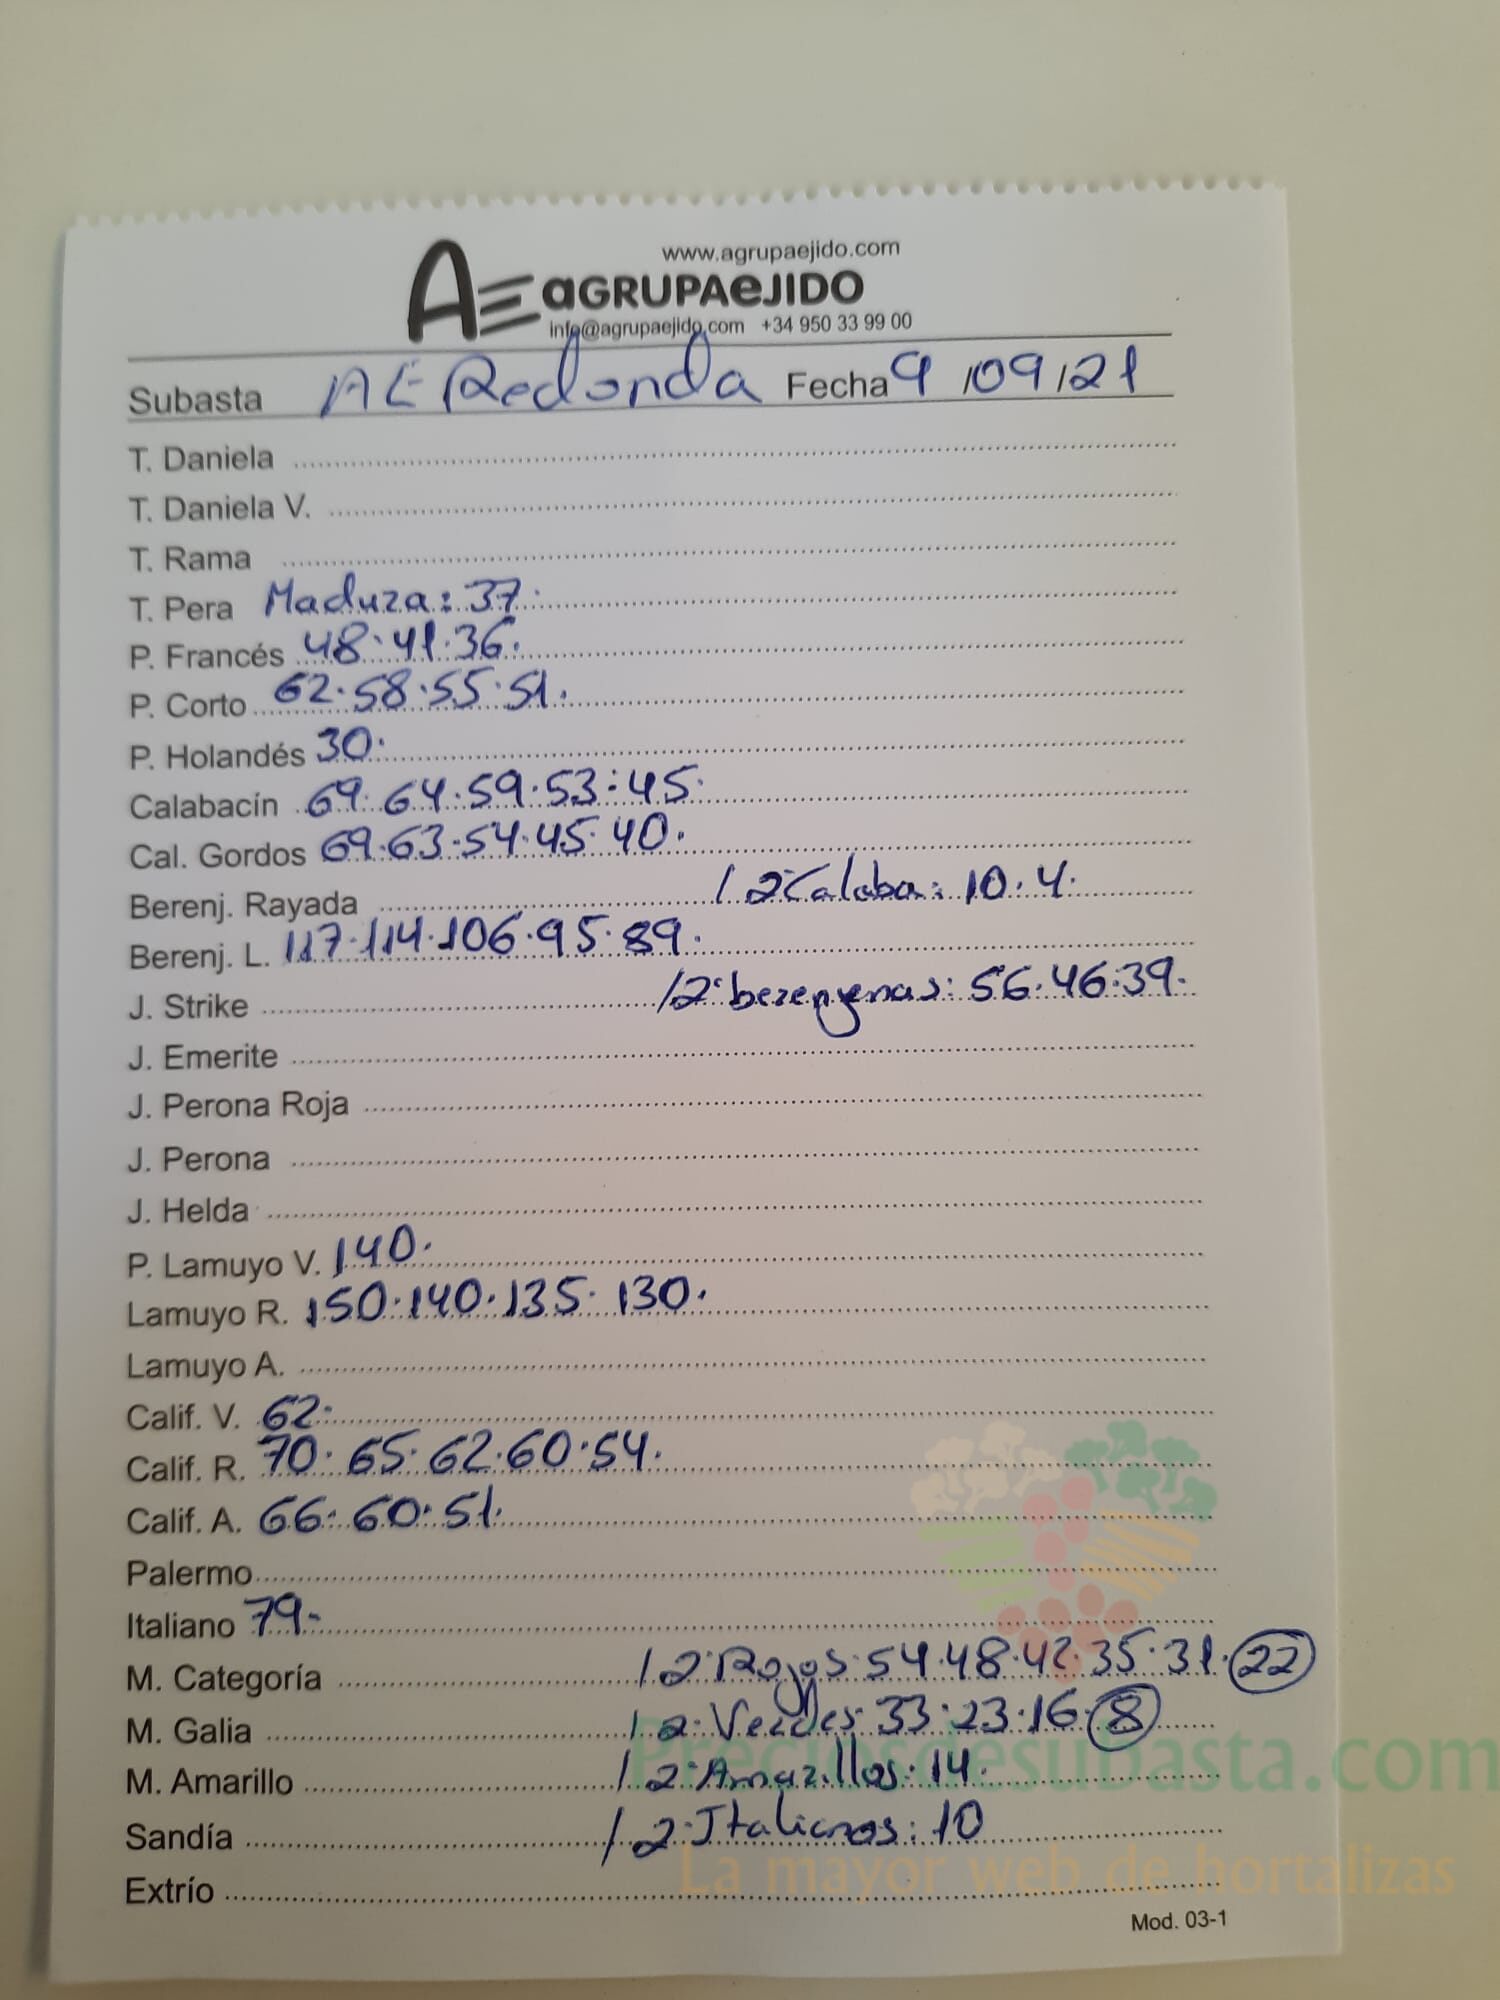 www.agrupaejido.com
AE aGRUPAeJIDO
info@agrupaejido.com +34 950 33 99 00
Subasta AE Redonda Fecha 9/09/21
T. Daniela
T. Daniela V.
T. Rama
T. Pera Madura: 37.
P. Francés 48.41.36.
P. Corto 62.58.55.51.
P. Holandés 30.
Calabacín 69.64.59.53.45.
Cal. Gordos 69.63.54.45.40.
Berenj. Rayada / 2ª Calaba: 10.4.
Berenj. L. 117.114.106.95.89.
J. Strike / 2ª berenjenas: 56.46.39.
J. Emerite
J. Perona Roja
J. Perona
J. Helda
P. Lamuyo V. 140.
Lamuyo R. 150.140.135.130.
Lamuyo A.
Calif. V. 62.
Calif. R. 70.65.62.60.54.
Calif. A. 66.60.51.
Palermo
Italiano 79.
M. Categoría / 2ª Rojos: 54.48.42.35.31.22
M. Galia / 2ª Verdes: 33.23.16.8
M. Amarillo / 2ª Amarillos: 14.
Preciosdesubasta.com
Sandía / 2ª Italianos: 10
La mayor web de hortalizas
Extrío
Mod. 03-1